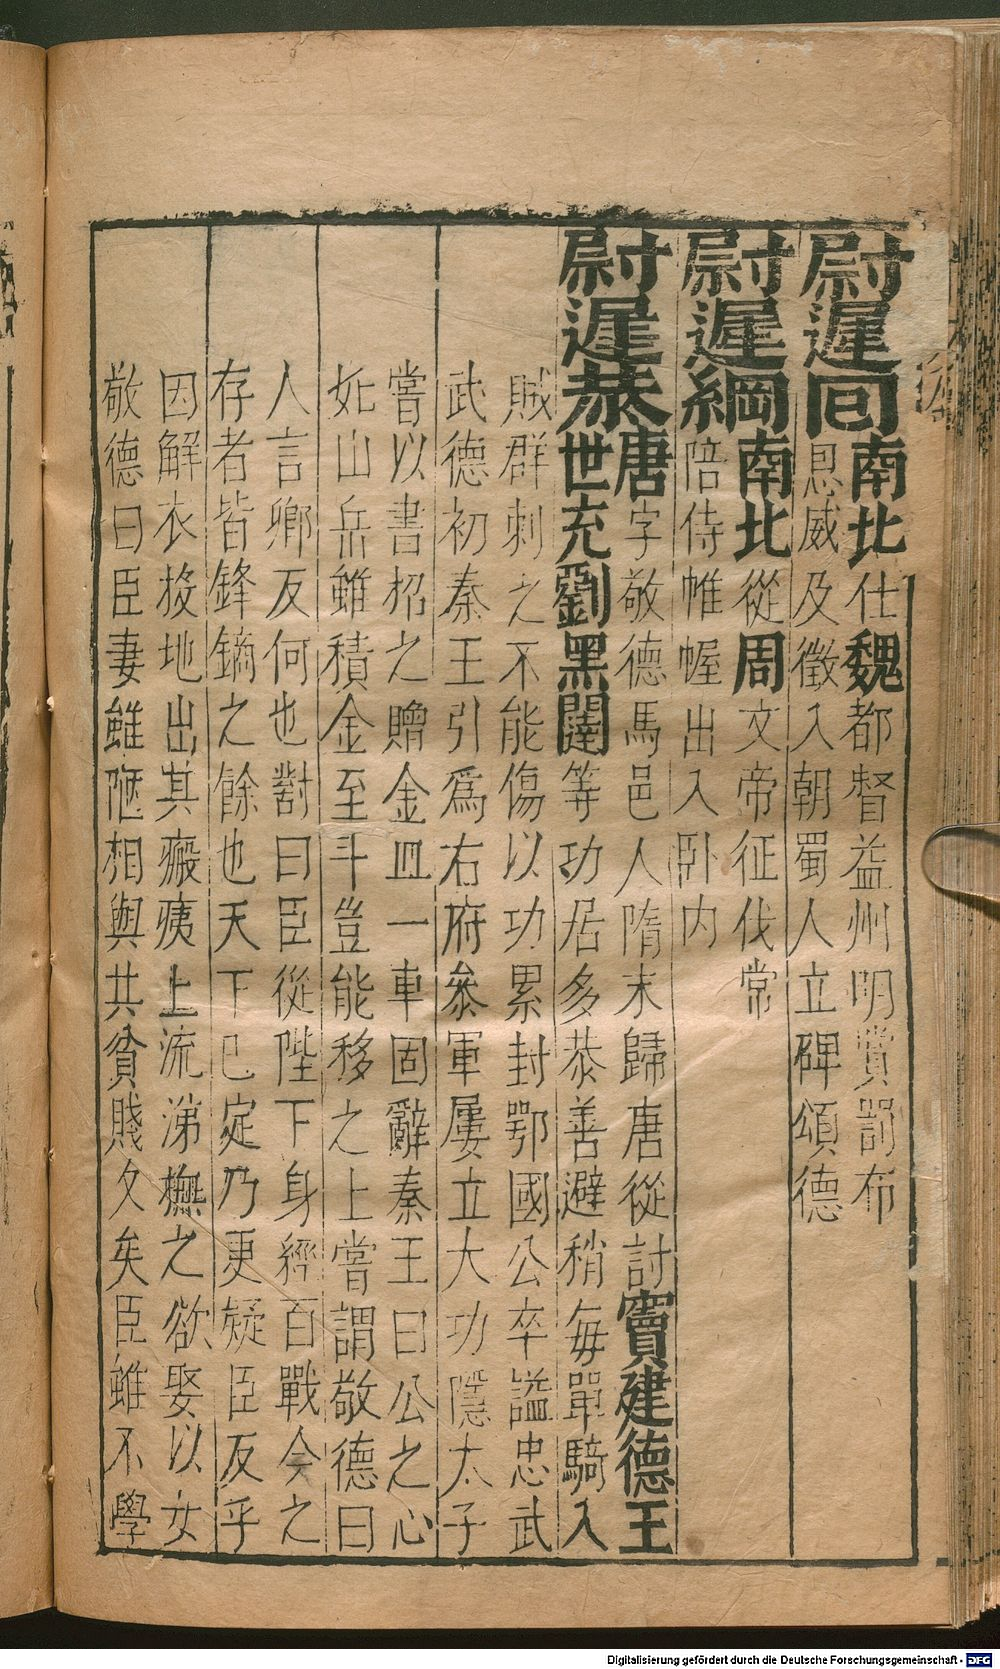 尉遲囘南北仕魏都督益州明賞罰布
恩威及徵入朝蜀人立碑頌德
尉遲綱南北從周文帝征伐常
陪侍帷幄出入卧内
尉遲恭唐字敬德馬邑人隋末歸唐從討竇建德王
世充劉黑闥等功居多恭善避矟每單騎入
賊群刺之不能傷以功累封鄂國公卒謚忠武
武德初秦王引爲右府叅軍屢立大功隱太子
嘗以書招之贈金皿一車固辭秦王曰公之心
如山岳雖積金至斗豈能移之上嘗謂敬德曰
人言卿反何也對曰臣從陛下身經百戰今之
存者皆鋒鏑之餘也天下已定乃更疑臣反乎
因解衣投地出其瘢痍上流涕撫之欲娶以女
敬德曰臣妻雖陋相與共貧賤久矣臣雖不學
Digitalisierung gefördert durch die Deutsche Forschungsgemeinschaft - DFG